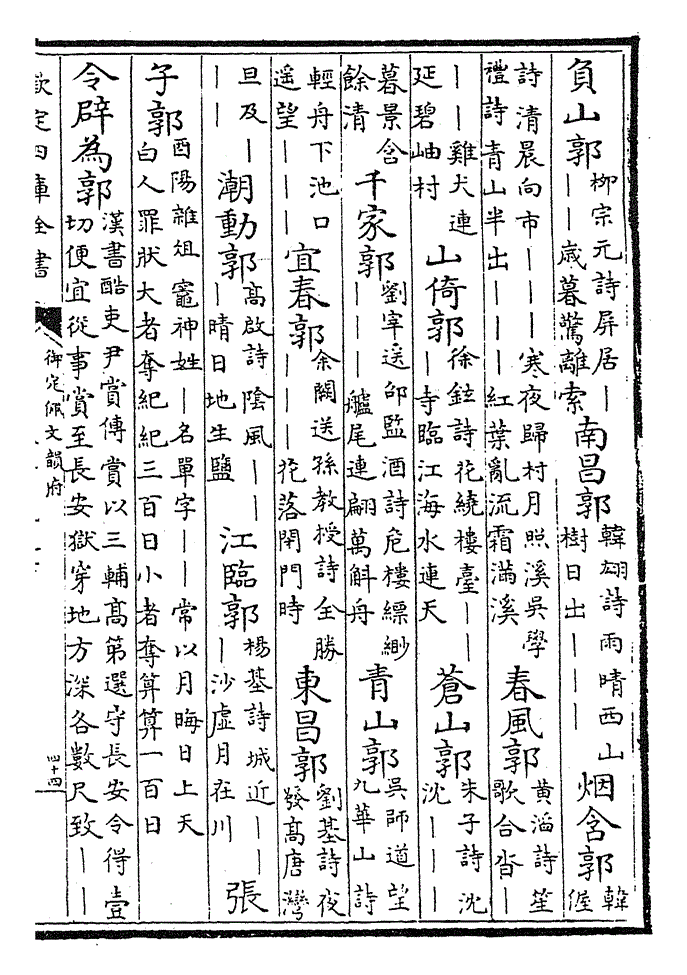 負山郭柳宗元詩屏居丨丨丨嵗暮驚離索南昌郭韓翃詩雨晴西山樹日出丨丨丨烟含郭韓偓
詩清晨向市丨丨丨寒夜歸村月照溪吳學禮詩青山半出丨丨丨紅葉亂流霜滿溪春風郭黄滔詩笙歌合沓丨
丨丨雞犬連延碧岫村山倚郭徐鉉詩花繞樓臺丨丨丨寺臨江海水連天蒼山郭朱子詩沈沈丨丨丨
暮景含餘清千家郭劉宰送邰監酒詩危樓縹緲丨丨丨艫尾連翩萬斛舟青山郭吳師道望九華山詩
輕舟下池口遥望丨丨丨宜春郭余闕送孫教授詩全勝丨丨丨花落閉門時東昌郭劉基詩夜發髙唐灣
旦及丨丨丨潮動郭髙啟詩陰風丨丨丨晴日地生鹽江臨郭楊基詩城近丨丨丨沙虛月在川張
子郭酉陽雜俎竈神姓丨名單字丨丨常以月晦日上天白人罪狀大者奪紀紀三百日小者奪算算一百日
令辟為郭漢書酷吏尹賞傳賞以三輔髙第選守長安令得壹切便宜從事賞至長安獄穿地方深各數尺致丨丨
欽定四庫全書
御定佩文韻府
四十四